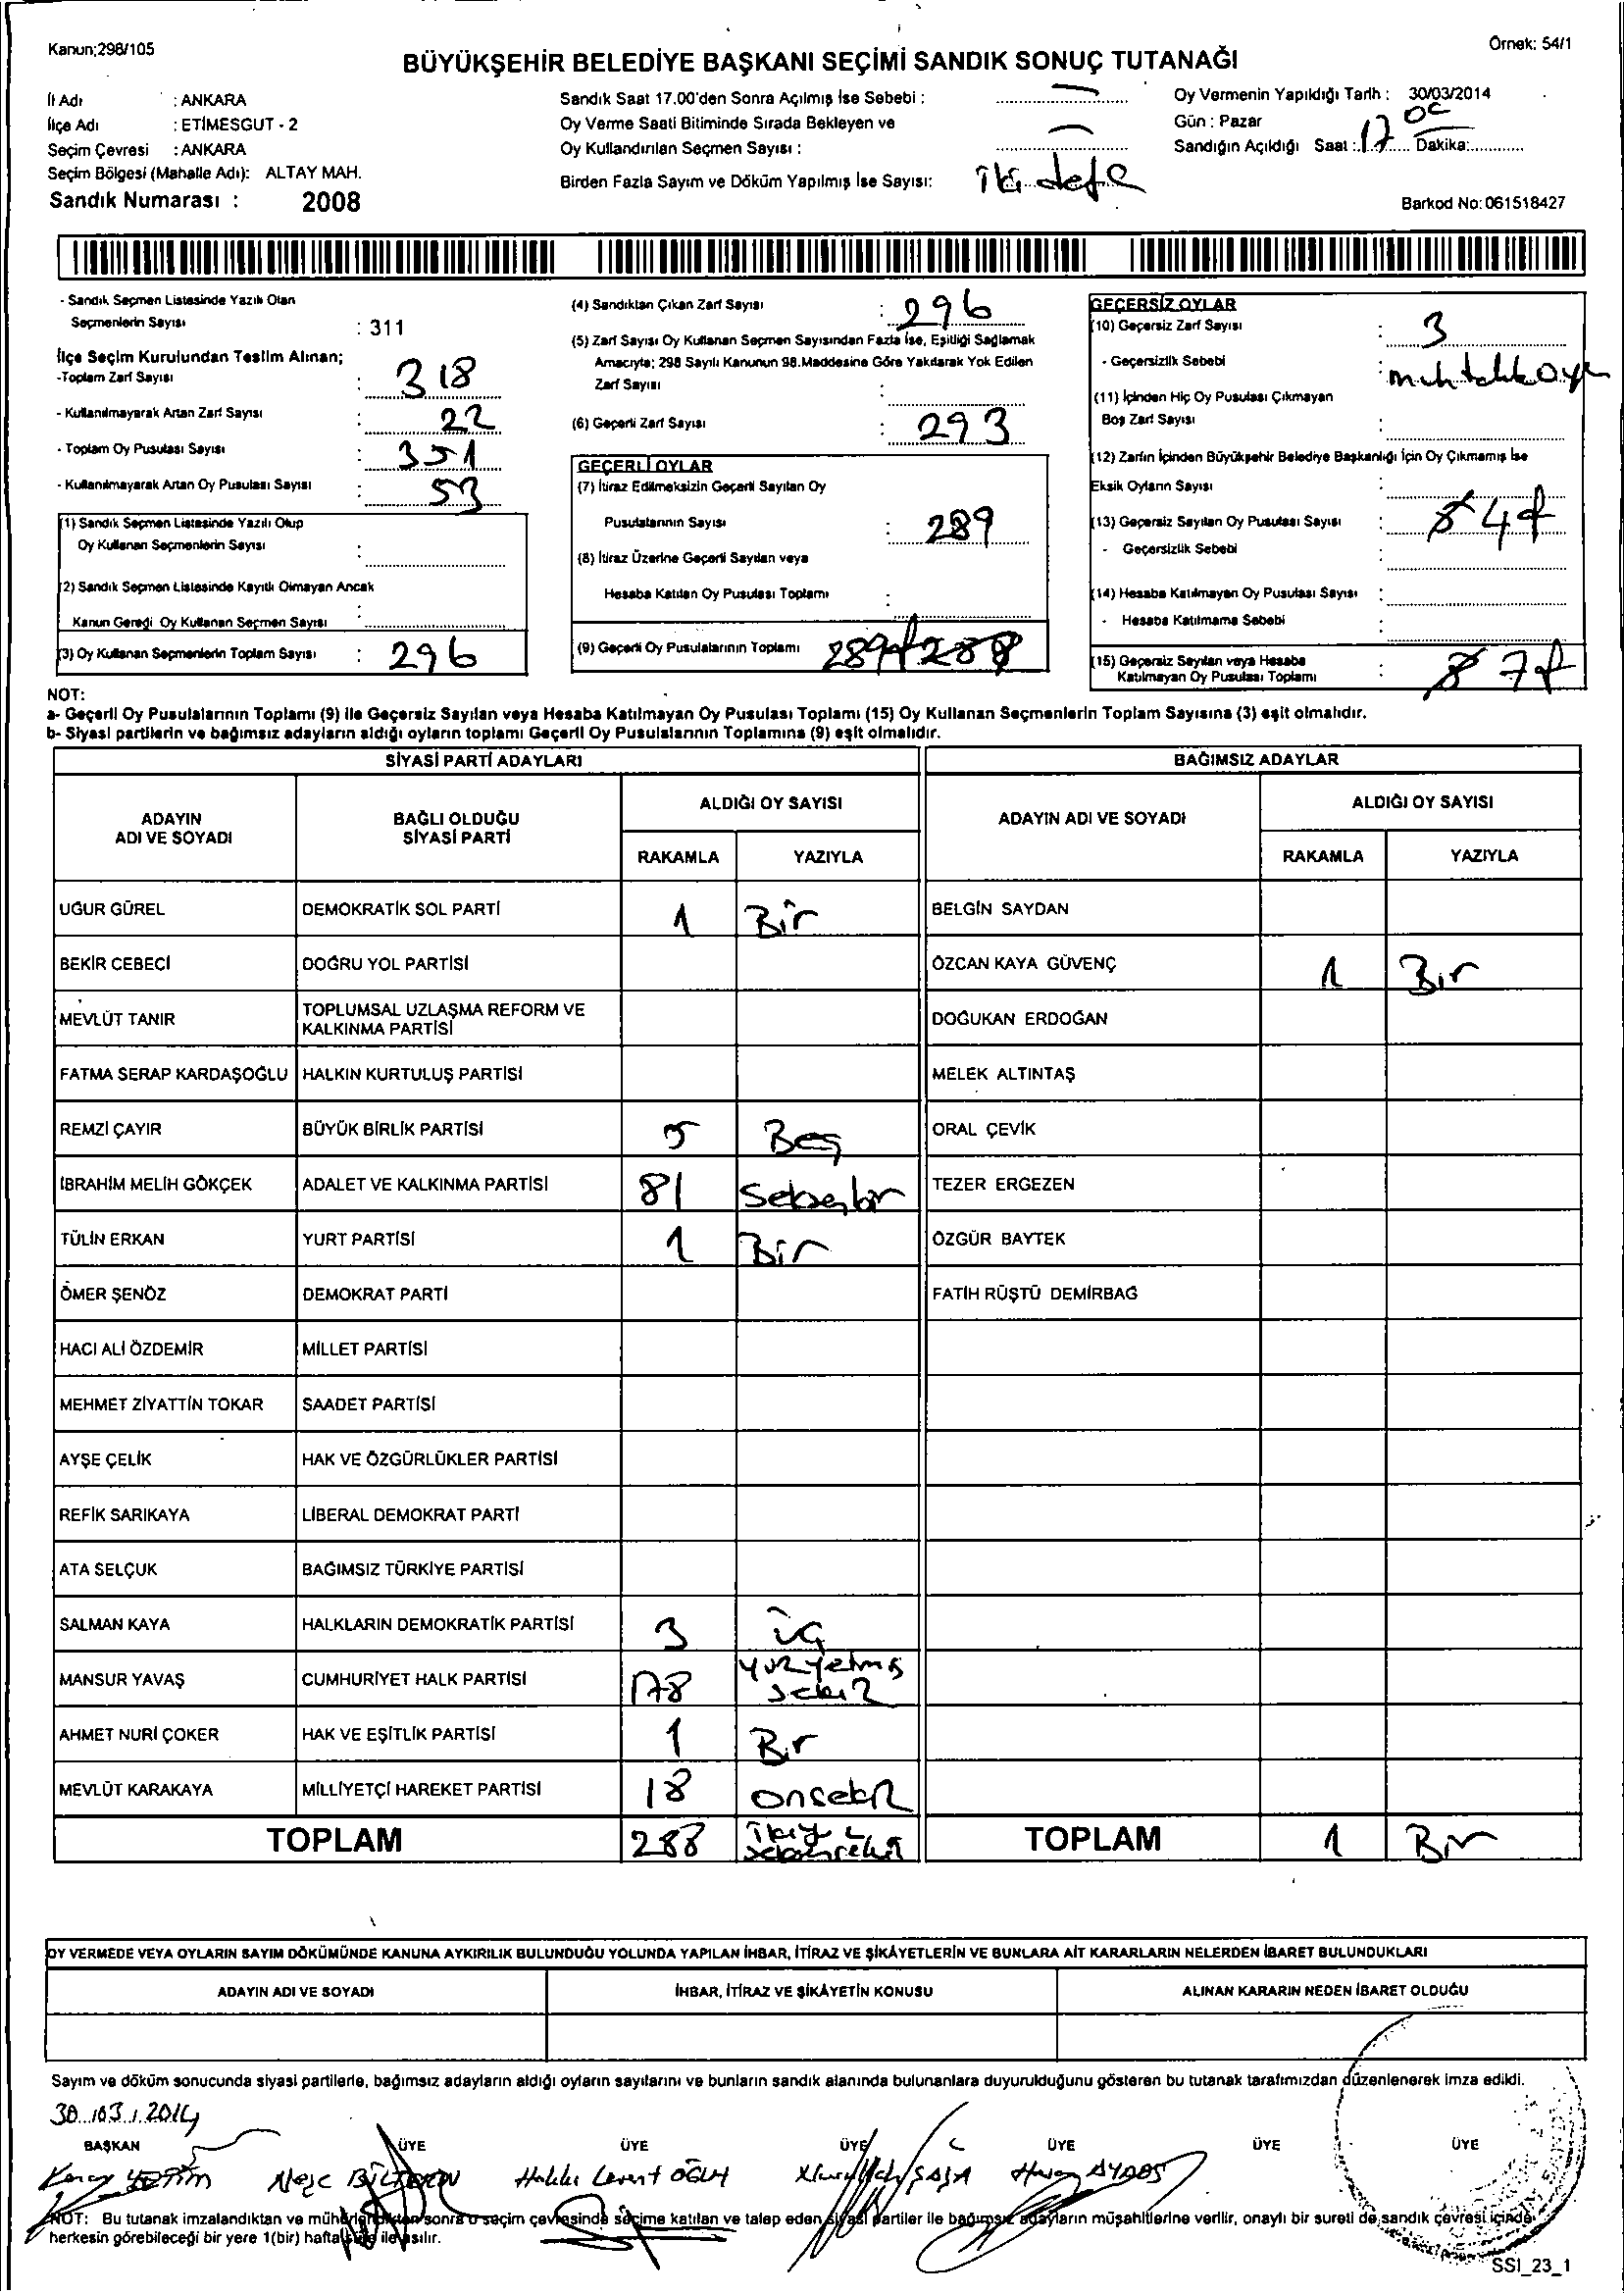 Kanun;298/105
Örnek: 54/1
BÜYÜKŞEHİR BELEDİYE BAŞKANI SEÇİMİ SANDIK SONUÇ TUTANAĞI
İl Adı : ANKARA
İlçe Adı : ETİMESGUT - 2
Seçim Çevresi : ANKARA
Seçim Bölgesi (Mahalle Adı): ALTAY MAH.
Sandık Numarası : 2008
Sandık Saat 17.00'den Sonra Açılmış İse Sebebi : —
Oy Verme Saati Bitiminde Sırada Bekleyen ve
Oy Kullandırılan Seçmen Sayısı : —
Birden Fazla Sayım ve Döküm Yapılmış İse Sayısı: iki defa
Oy Vermenin Yapıldığı Tarih : 30/03/2014
Gün : Pazar
Sandığın Açıldığı Saat : 17 Dakika: 00
Barkod No: 061518427
- Sandık Seçmen Listesinde Yazılı Olan
Seçmenlerin Sayısı : 311
İlçe Seçim Kurulundan Teslim Alınan;
-Toplam Zarf Sayısı : 318
- Kullanılmayarak Artan Zarf Sayısı : 22
- Toplam Oy Pusulası Sayısı : 351
- Kullanılmayarak Artan Oy Pusulası Sayısı : 53
(1) Sandık Seçmen Listesinde Yazılı Olup
Oy Kullanan Seçmenlerin Sayısı :
(2) Sandık Seçmen Listesinde Kayıtlı Olmayan Ancak
Kanun Geregi Oy Kullanan Seçmen Sayısı :
(3) Oy Kullanan Seçmenlerin Toplam Sayısı : 296
(4) Sandıktan Çıkan Zarf Sayısı : 296
(5) Zarf Sayısı Oy Kullanan Seçmen Sayısından Fazla İse, Eşitliği Sağlamak
Amacıyta; 298 Sayılı Kanunun 98.Maddesine Göre Yakılarak Yok Edilen
Zarf Sayısı :
(6) Geçerli Zarf Sayısı : 293
GEÇERLİ OYLAR
(7) İtiraz Edilmeksizin Geçerli Sayılan Oy
Pusulalarının Sayısı : 289
(8) İtiraz Üzerine Geçerli Sayılan veya
Hesaba Katılan Oy Pusulası Toplamı :
(9) Geçerli Oy Pusulalarının Toplamı 289 288
GEÇERSİZ OYLAR
(10) Geçersiz Zarf Sayısı : 3
- Geçersizlik Sebebi :
(11) İçinden Hiç Oy Pusulası Çıkmayan
Boş Zarf Sayısı :
(12) Zarfın İçinden Büyükşehir Belediye Başkanlığı İçin Oy Çıkmamış İse
Eksik Oyların Sayısı :
(13) Geçersiz Sayılan Oy Pusulası Sayısı : 8 4
- Geçersizlik Sebebi :
(14) Hesaba Katılmayan Oy Pusulası Sayısı :
- Hesaba Katılmama Sebebi :
(15) Geçersiz Sayılan veya Hesaba
Katılmayan Oy Pusulası Toplamı : 8 7
NOT:
a- Geçerli Oy Pusulalarının Toplamı (9) ile Geçersiz Sayılan veya Hesaba Katılmayan Oy Pusulası Toplamı (15) Oy Kullanan Seçmenlerin Toplam Sayısına (3) eşit olmalıdır.
b- Siyasi partilerin ve bağımsız adayların aldığı oyların toplamı Geçerli Oy Pusulalarının Toplamına (9) eşit olmalıdır.
SİYASİ PARTİ ADAYLARI
BAĞIMSIZ ADAYLAR
ADAYIN
ADI VE SOYADI
BAĞLI OLDUĞU
SİYASİ PARTİ
ALDIĞI OY SAYISI
RAKAMLA YAZIYLA
ADAYIN ADI VE SOYADI
ALDIĞI OY SAYISI
RAKAMLA YAZIYLA
UĞUR GÜREL DEMOKRATİK SOL PARTİ 1 Bir BELGİN SAYDAN
BEKİR CEBECİ DOĞRU YOL PARTİSİ ÖZCAN KAYA GÜVENÇ 1 Bir
MEVLÜT TANIR TOPLUMSAL UZLAŞMA REFORM VE
KALKINMA PARTİSİ DOĞUKAN ERDOĞAN
FATMA SERAP KARDAŞOĞLU HALKIN KURTULUŞ PARTİSİ MELEK ALTINTAŞ
REMZİ ÇAYIR BÜYÜK BİRLİK PARTİSİ 5 Beş ORAL ÇEVİK
İBRAHİM MELİH GÖKÇEK ADALET VE KALKINMA PARTİSİ 81 Seksenbir TEZER ERGEZEN
TÜLİN ERKAN YURT PARTİSİ 1 Bir ÖZGÜR BAYTEK
ÖMER ŞENÖZ DEMOKRAT PARTİ FATİH RÜŞTÜ DEMİRBAĞ
HACI ALİ ÖZDEMİR MİLLET PARTİSİ
MEHMET ZİYATTİN TOKAR SAADET PARTİSİ
AYŞE ÇELİK HAK VE ÖZGÜRLÜKLER PARTİSİ
REFİK SARIKAYA LİBERAL DEMOKRAT PARTİ
ATA SELÇUK BAĞIMSIZ TÜRKİYE PARTİSİ
SALMAN KAYA HALKLARIN DEMOKRATİK PARTİSİ 3 üç
MANSUR YAVAŞ CUMHURİYET HALK PARTİSİ 178 yüzyetmiş
sekiz
AHMET NURİ ÇOKER HAK VE EŞİTLİK PARTİSİ 1 Bir
MEVLÜT KARAKAYA MİLLİYETÇİ HAREKET PARTİSİ 18 onsekiz
TOPLAM 288 ikiyüz
seksensekiz TOPLAM 1 Bir
OY VERMEDE VEYA OYLARIN SAYIM DÖKÜMÜNDE KANUNA AYKIRILIK BULUNDUĞU YOLUNDA YAPILAN İHBAR, İTİRAZ VE ŞİKÂYETLERİN VE BUNLARA AİT KARARLARIN NELERDEN İBARET BULUNDUKLARI
ADAYIN ADI VE SOYADI İHBAR, İTİRAZ VE ŞİKÂYETİN KONUSU ALINAN KARARIN NEDEN İBARET OLDUĞU
Sayım ve döküm sonucunda siyasi partilerle, bağımsız adayların aldığı oyların sayılarını ve bunların sandık alanında bulunanlara duyurulduğunu gösteren bu tutanak tarafımızdan düzenlenerek imza edildi.
30.03.2014
BAŞKAN ÜYE ÜYE ÜYE ÜYE ÜYE ÜYE
Hakkı Levent
NOT: Bu tutanak imzalandıktan ve mühürlendikten sonra o seçim çevresinde seçime katılan ve talep eden siyasi partiler ile bağımsız adayların müşahitlerine verilir, onaylı bir sureti de sandık çevresi içinde
herkesin görebileceği bir yere 1(bir) hafta süre ile asılır.
SSI_23_1